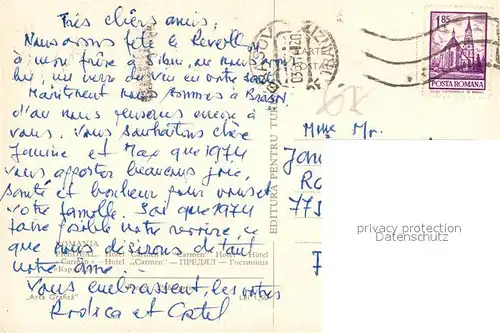 Très chers amis,
Nous avons fêté le Reveillon
à mon frère à Sibiu, où nous avons
bu un verre du vin en votre santé
Maintenent nous sommes à Brașov
d'où nous pensons encore à
vous. Vous souhaitons chère
Janine et Max que 1974
vous apporter beaucoup joie,
santé et bonheur pour vous et
votre famille. Soi que 1974
faire posible notre revoire, ce
que nous désirons de tant
notre âme.
Vous embrassent, les votres
Rodica et Costel
ROMANIA
PREDEAL - Hotel „Carmen" - Hôtel
„Carmen" - Hotel „Carmen" - ПРЕДЯЛ - Гостиница
„Arta Grafică"
Lei
EDITURA PENTRU TUR
1,85
POSTA ROMANA
Mme Mr.
Jan
Ro
775
F
privacy protection
Datenschutz